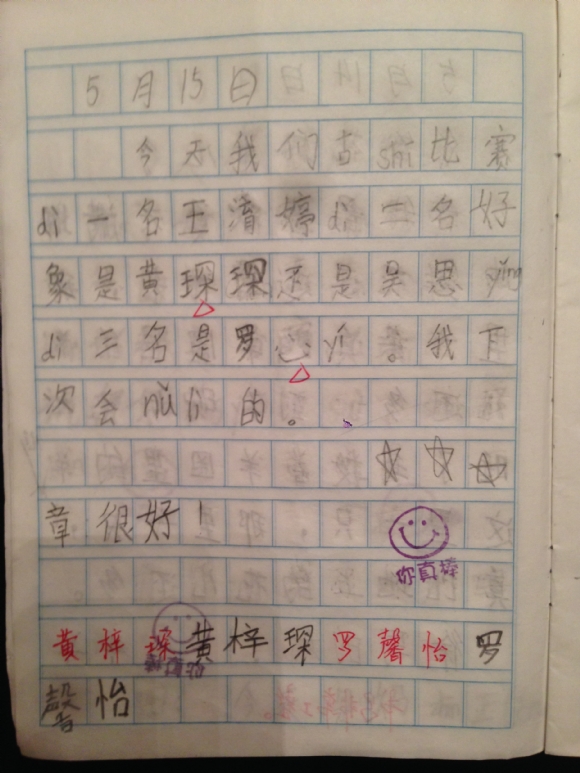 5月15日
今天我们古shi比赛
di一名王清婷di二名好
象是黄琛琛还是吴思ying
di三名是罗心yí。我下
次会nǔ lì的。
章很好！
你真棒
黄梓琛黄梓琛罗馨怡罗
馨怡